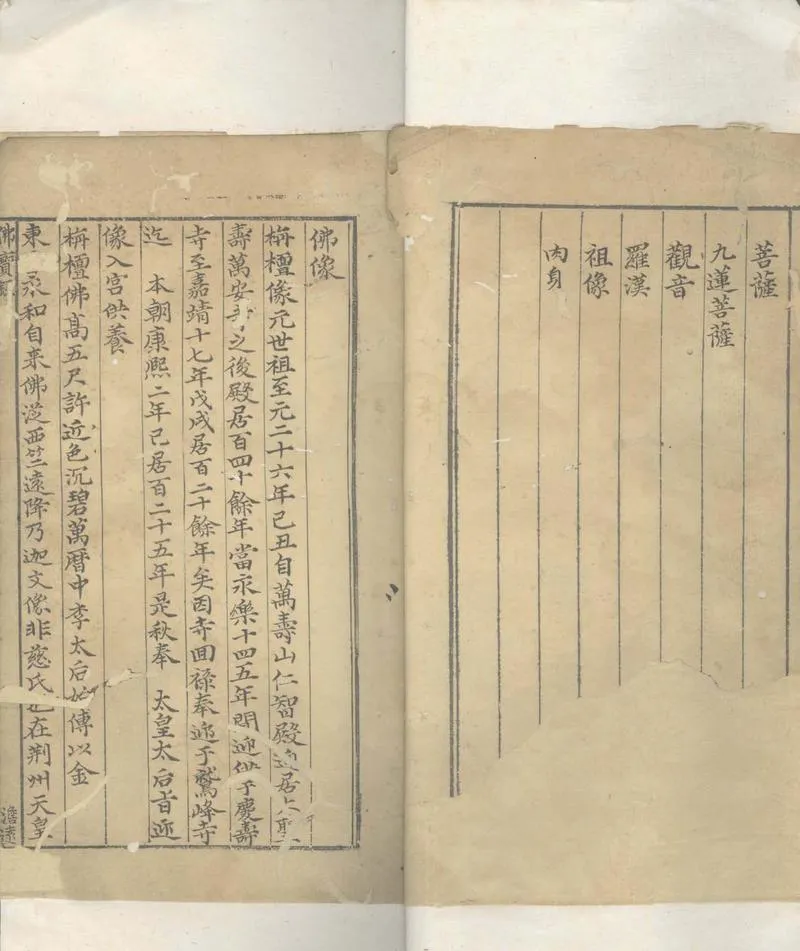 菩薩
九蓮菩薩
觀音
羅漢
祖像
肉身
佛像
栴檀像元世祖至元二十六年己丑自萬壽山仁智殿迎居大聖
壽萬安寺之後殿居百四十餘年當永樂十四五年間迎供于慶壽
寺至嘉靖十七年戊戌居百二十餘年矣因寺囬祿奉迎于鷲峰寺
迄 本朝康熙二年已居百二十五年是秋奉 太皇太后旨迎
像入宮供養
栴檀佛高五尺許近色沉碧萬曆中李太后始傅以金
東 承和自来佛從西竺遠降乃迦文像非慈氏也在荆州天皇
佛寶
澹遠